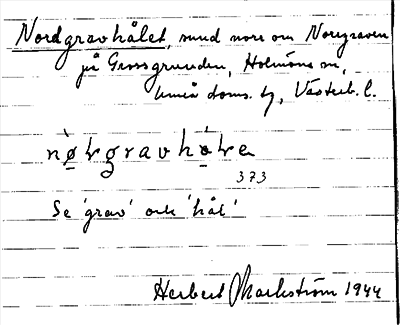 Nordgravhålet, sund norr om Norrgraven
på Grossgrunden, Holmöns sn,
Umeå doms. tg, Västerb. l.
nø̀ɽgravhòɽe
373
Se 'grav' och 'hål'
Herbert Markström 1944